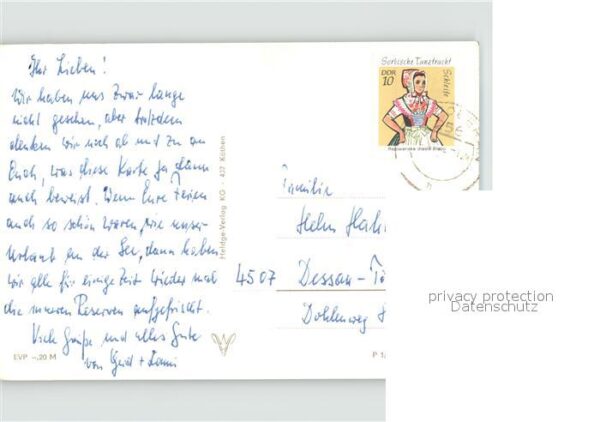 Ihr Lieben!
Wir haben uns zwar lange
nicht gesehen, aber trotzdem
denken wir noch ab und zu an
Euch, was diese Karte ja dann
auch beweist. Wenn Eure Ferien
auch so schön waren, wie unser
Urlaub an der See, dann haben
wir alle für einige Zeit wieder mal
die inneren Reserven aufgefrischt.
Viele Grüße und alles Gute
von Gerd +
EVP –,20 M
Heldge-Verlag KG · 437 Köthen
Sorbische Tanztracht
Schleife
DDR
10
Familie
Hahn
4507 Dessau-
Dohlenweg
privacy protection
Datenschutz